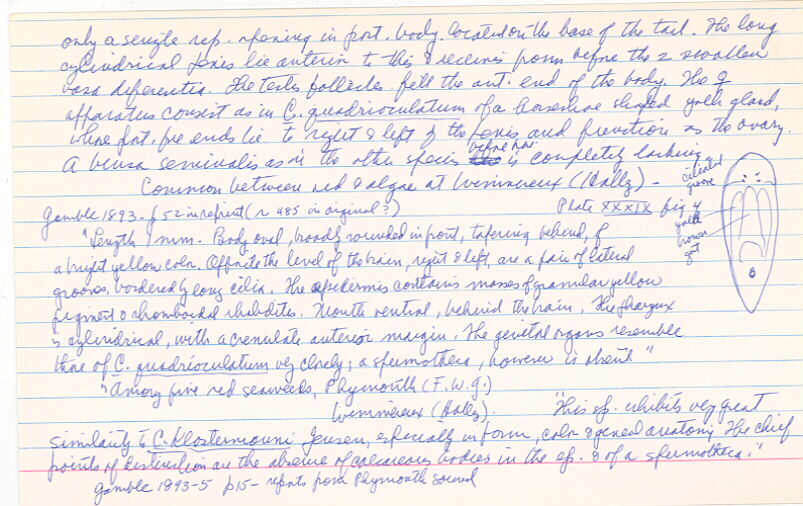 only a single rep. opening in post. body. located on the base of the tail. The long
cylindrical penis lies anterior to this & receives from before the 2 swollen
vasa deferentia. The testis follicles fill the ant. end of the body. The ♀
apparatus consist as in C. quadrioculatum of a horseshoe shaped yolk gland,
whose post. free ends lie to right & left of the penis and function as the ovary.
A bursa seminalis as in the other species before her. is completely lacking.
Common between red & algae at Wimereux (Hallez) -
ciliated
groove
Gamble 1893 - p 52 in reprint (~ 485 in original?)
Plate XXXIX fig 4
yolk
brown
gut
"Length 1 mm. Body oval, broadly rounded in front, tapering behind, of
a bright yellow color. Opposite the level of the brain, right & left, are a pair of lateral
grooves, bordered by long cilia. The epidermis contains masses of granular yellow
pigment & rhomboidal rhabdites. Mouth ventral, behind the brain. The pharynx
is cylindrical, with a crenulate anterior margin. The genital organs resemble
those of C. quadrioculatum very closely; a spermotheca, however is absent"
"Among fine red seaweeds, Plymouth (F.W.G.)
Wimereux (Hallez).
"This sp. exhibits very great
similarity to C. Klostermanni Jensen, especially in form, color & general anatomy. The chief
points of distinction are the absence of calcareous bodies in the ep. & of a spermotheca."
Gamble 1893-5 p15 - reports from Plymouth sound